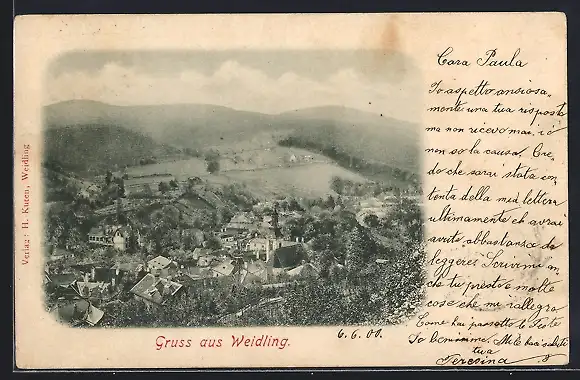 Cara Paula
Io aspetto ansiosa-
mente una tua risposta
ma non ricevo mai, io
non so la causa. Cre-
do che sarai stata con-
tenta della mia lettera
ultimamente ed avrai
avuto abbastanza da
leggere. Scrivimi an-
che tu presto e molte
cose che mi rallegra
Come hai passato le Feste
Io benissimo. Mile baci
tua
Teresina
6.6.00.
Gruss aus Weidling.
Verlag: H. Kuten, Weidling